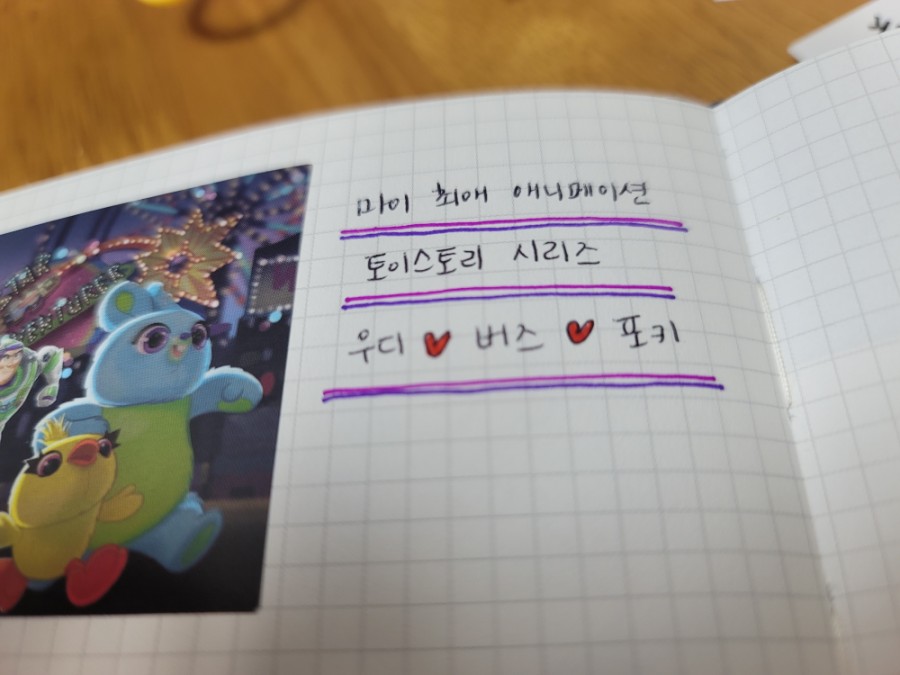 마이 최애 애니메이션
토이스토리 시리즈
우디 ♥ 버즈 ♥ 포키